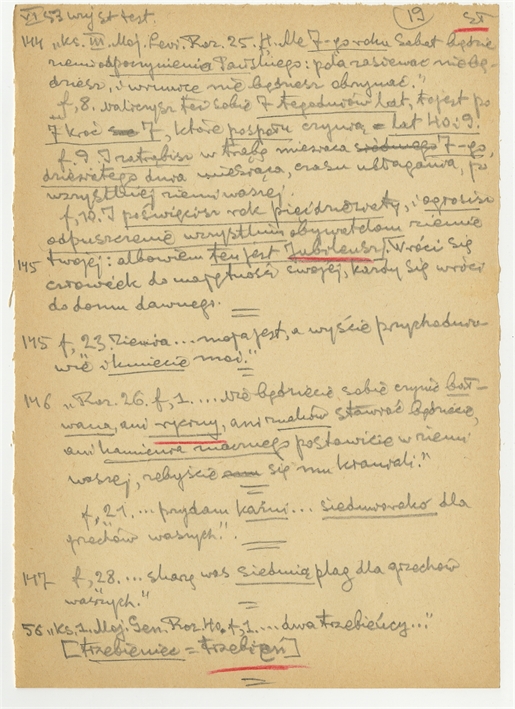 VI 53 wyj st test. (19) SŁ
144 „Ks. III. Moj. Levi. Roz. 25. f, 4. Ale 7-go roku Sabat będzie
ziemi odpoczynienia Pańskiego: pola zasiewać nie bę-
dziesz, i winnice nie będziesz obrzynać."
f, 8. naliczysz też sobie 7 tegodniów lat, to jest po
7 kroć 7, które pospołu czynią = lat 40 i 9.
f. 9. I zatrąbisz w trąbę miesiąca siódmego 7-go,
dziesiątego dnia miesiąca, czasu ubłagania, po
wszystkiej ziemi waszej.
f, 10. I poświęcisz rok pięćdziesiąty, i ogłosisz
odpuszczenie wszystkim obywatelom ziemie
twojej: albowiem ten jest Jubileusz. Wróci się
145 człowiek do majętności swojej, każdy się wróci
do domu dawnego.
145 f, 23. Ziemia... moja jest, a wyście przychodnio-
wie i kmiecie moi."
146 „Roz. 26. f, 1. .... Nie będziecie sobie czynić bał-
wana, ani ryciny, ani znaków stawiać będziecie,
ani kamienia znacznego postawicie w ziemi
waszej, żebyście się mu kłaniali."
f, 21. ... przydam kaźni... siedmiorako dla
grzechów waszych."
147 f, 28. ... skarzę was siedmią plag dla grzechów
waszych."
56 „Ks. 1. Moj. Gen. Roz. 40. f, 1. ... dwa trzebieńcy..."
[trzebieniec = trzebień]